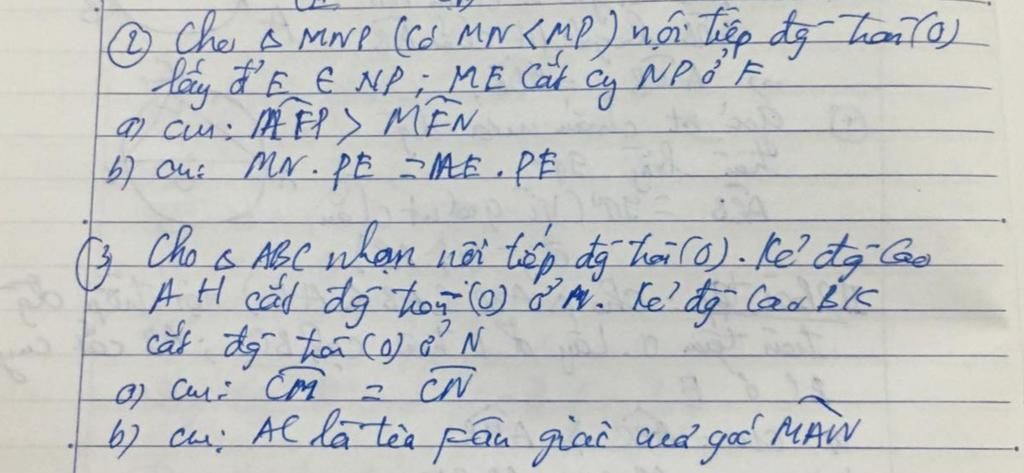 ② Cho Δ MNP (Có MN < MP) nội tiếp đg tròn (O)
lấy đ' E ∈ NP ; ME cắt cg NP ở F
a) cm: MFP > MFN
b) cm: MN . PE = ME . PE
③ Cho Δ ABC nhọn nội tiếp đg tròn (O). Kẻ đg cao
AH cắt đg tròn (O) ở M. Kẻ đg cao BK
cắt đg tròn (O) ở N
a) cm: CM = CN
b) cm: AC là tia phân giác của góc MAN